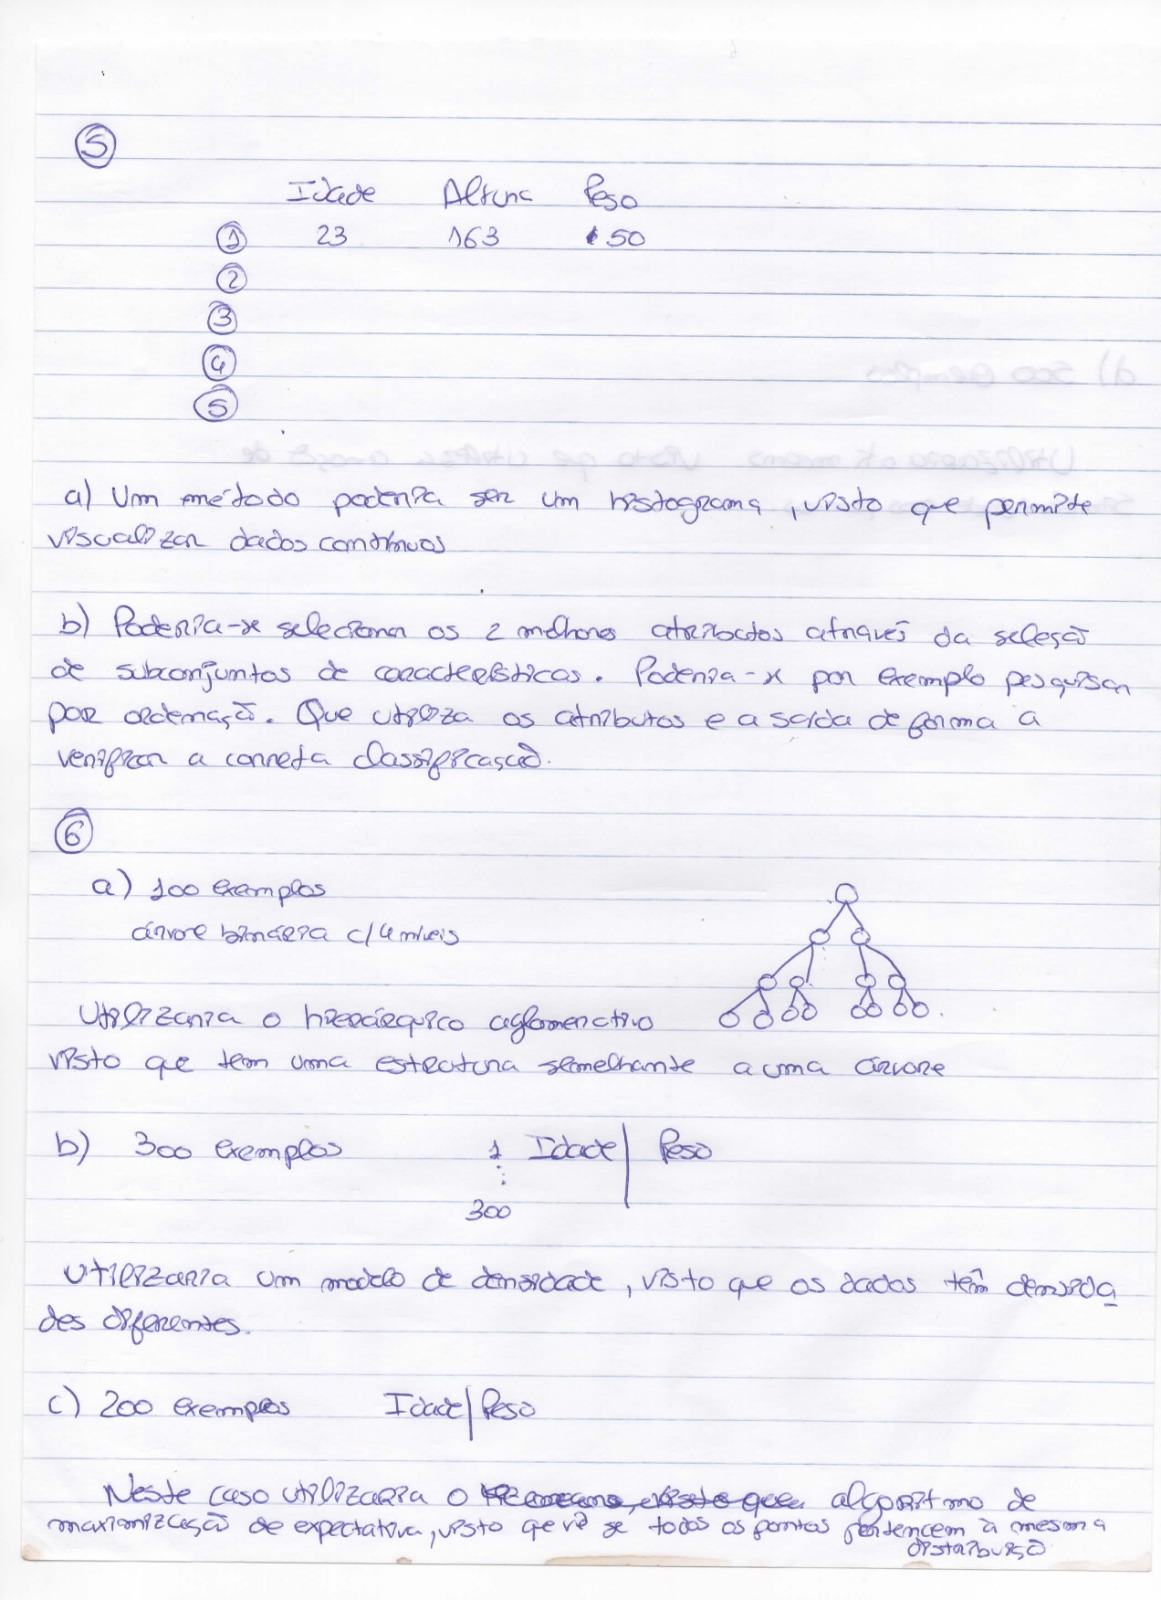 5
Idade Altura Peso
1 23 163 50
2
3
4
5
a) Um método poderia ser um histograma, visto que permite
visualizar dados contínuos
b) Poderia-se selecionar os 2 melhores atributos através da seleção
de subconjuntos de características. Poderia-se por exemplo pesquisar
por ordenação. Que utiliza os atributos e a saída de forma a
verificar a correta classificação.
6
a) 100 exemplos
árvore binária c/4 níveis
Utilizaria o hierárquico aglomerativo
visto que tem uma estrutura semelhante a uma árvore
b) 300 exemplos 1 Idade | Peso
⋮
300
Utilizaria um modelo de densidade, visto que os dados têm densida
des diferentes.
c) 200 exemplos Idade | Peso
Neste caso utilizaria o algoritmo de
maximização de expectativa, visto que vê se todos os pontos pertencem à mesma
distribuição